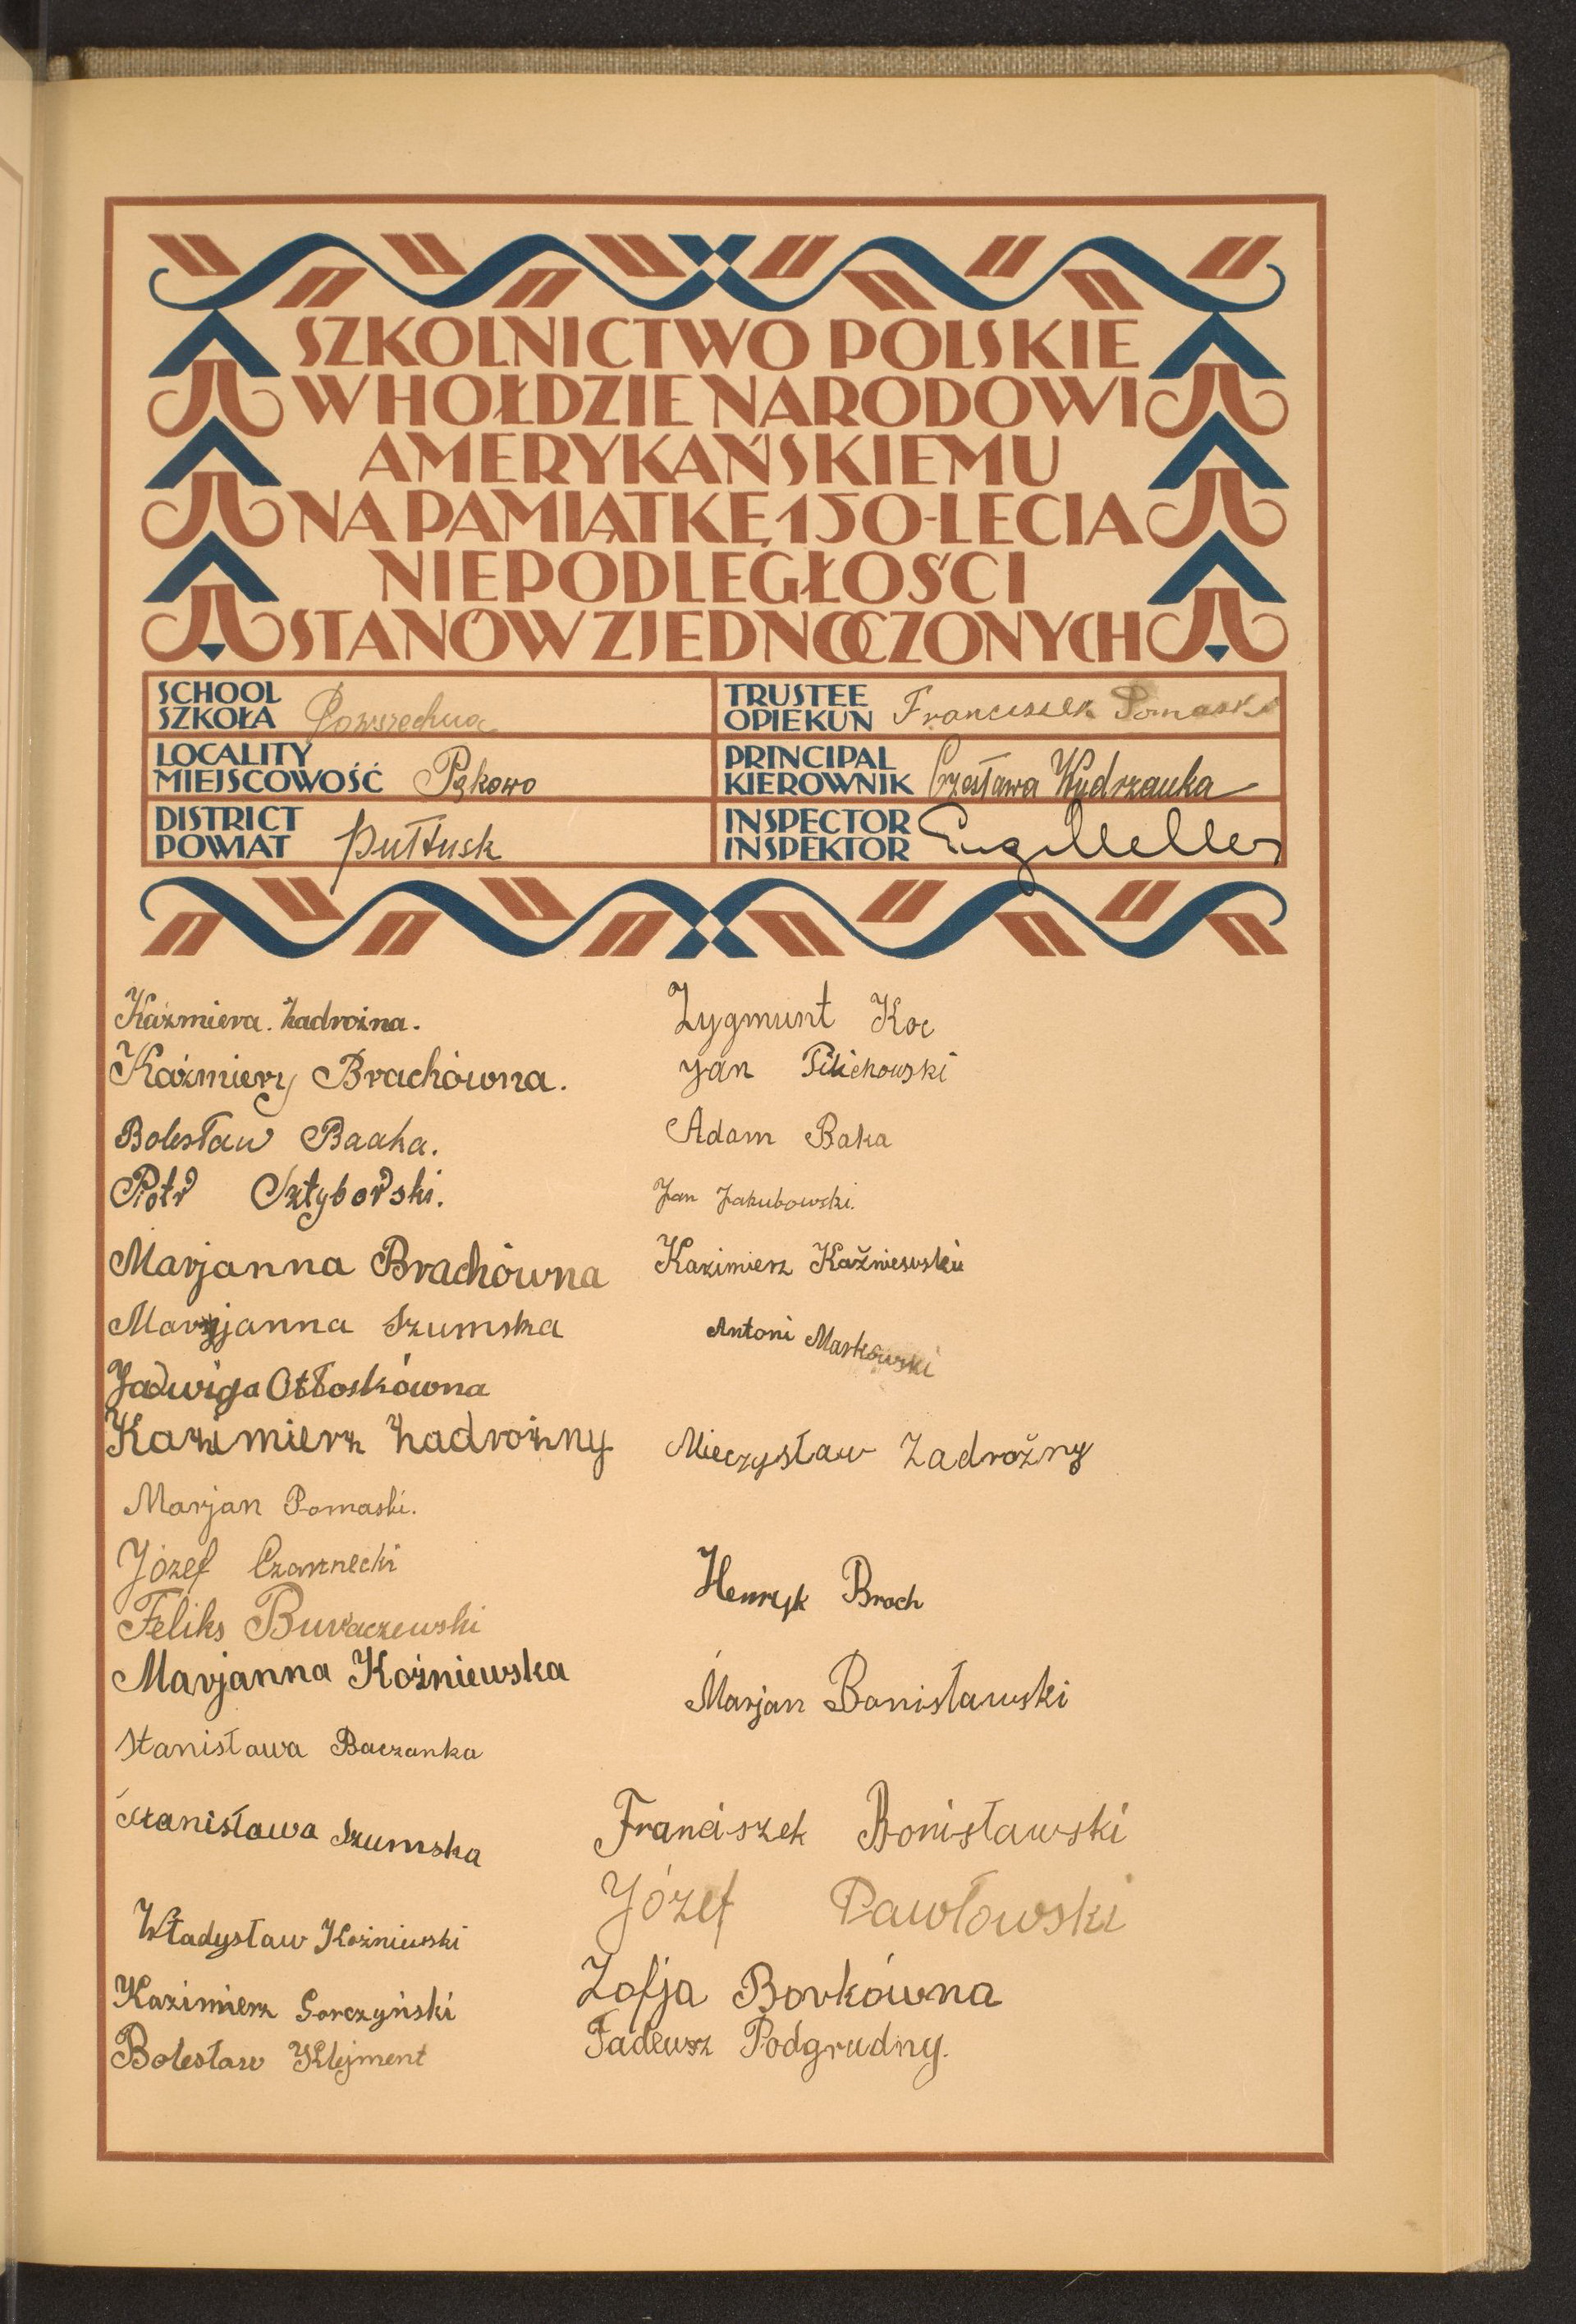 SZKOLNICTWO POLSKIE
W HOŁDZIE NARODOWI
AMERYKAŃSKIEMU
NA PAMIĄTKĘ 150-LECIA
NIEPODLEGŁOŚCI
STANÓW ZJEDNOCZONYCH
SCHOOL
SZKOŁA Powszechna
TRUSTEE
OPIEKUN Franciszek Pomaski
LOCALITY
MIEJSCOWOŚĆ Pękowo
PRINCIPAL
KIEROWNIK Czesława Wydrzanka
DISTRICT
POWIAT Pułtusk
INSPECTOR
INSPEKTOR
Kaźmiera. Zadrożna.
Kaźmiery Brachówna.
Bolesław Baaka.
Piotr Sztyborski.
Marjanna Brachówna
Marjanna Szumska
Jadwiga Otłoskówna
Kazimierz Zadrożny
Marjan Pomaski.
Józef Czarnecki
Feliks Buraczewski
Marjanna Koźniewska
Stanisława Baczanka
Stanisława Szumska
Władysław Koźniewski
Kazimierz Gorczyński
Bolesław Klejment
Zygmunt Koc
Jan Pilichowski
Adam Baka
Jan Jakubowski.
Kazimierz Kaźniewski
Antoni Markowski
Mieczysław Zadrożny
Henryk Brach
Marjan Bonisławski
Franciszek Bonisławski
Józef Pawłowski
Zofja Borkówna
Tadeusz Podgrudny.